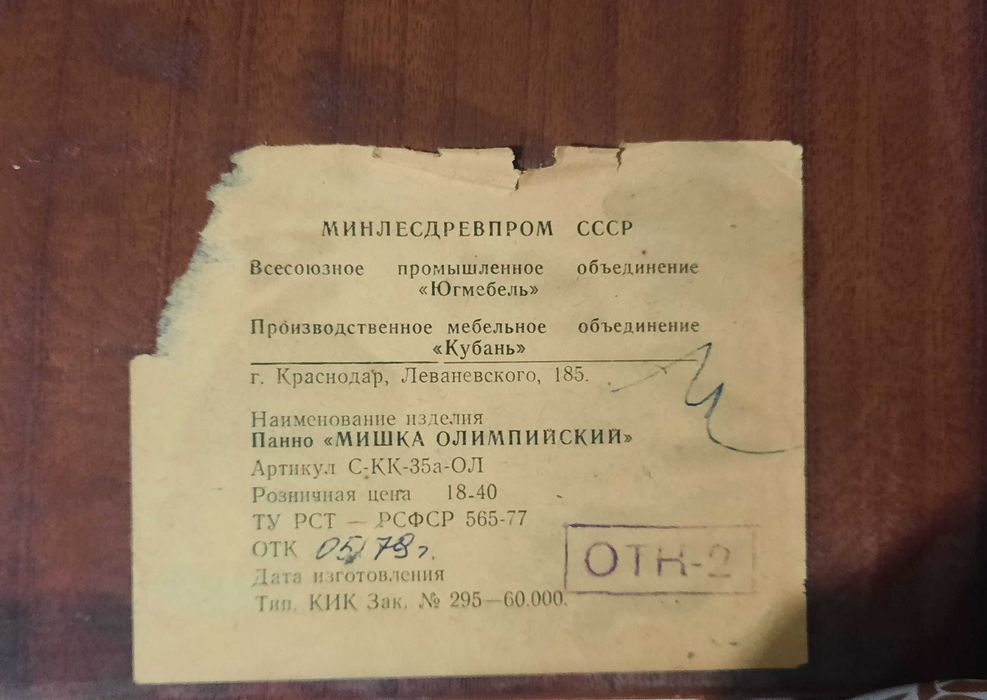 МИНЛЕСДРЕВПРОМ СССР
Всесоюзное промышленное объединение
«Югмебель»
Производственное мебельное объединение
«Кубань»
г. Краснодар, Леваневского, 185.
Наименование изделия
Панно «МИШКА ОЛИМПИЙСКИЙ»
Артикул С-КК-35а-ОЛ
Розничная цена 18-40
ТУ РСТ — РСФСР 565-77
ОТК 05/79г.
ОТК-2
Дата изготовления
Тип. КИК Зак. № 295—60.000.